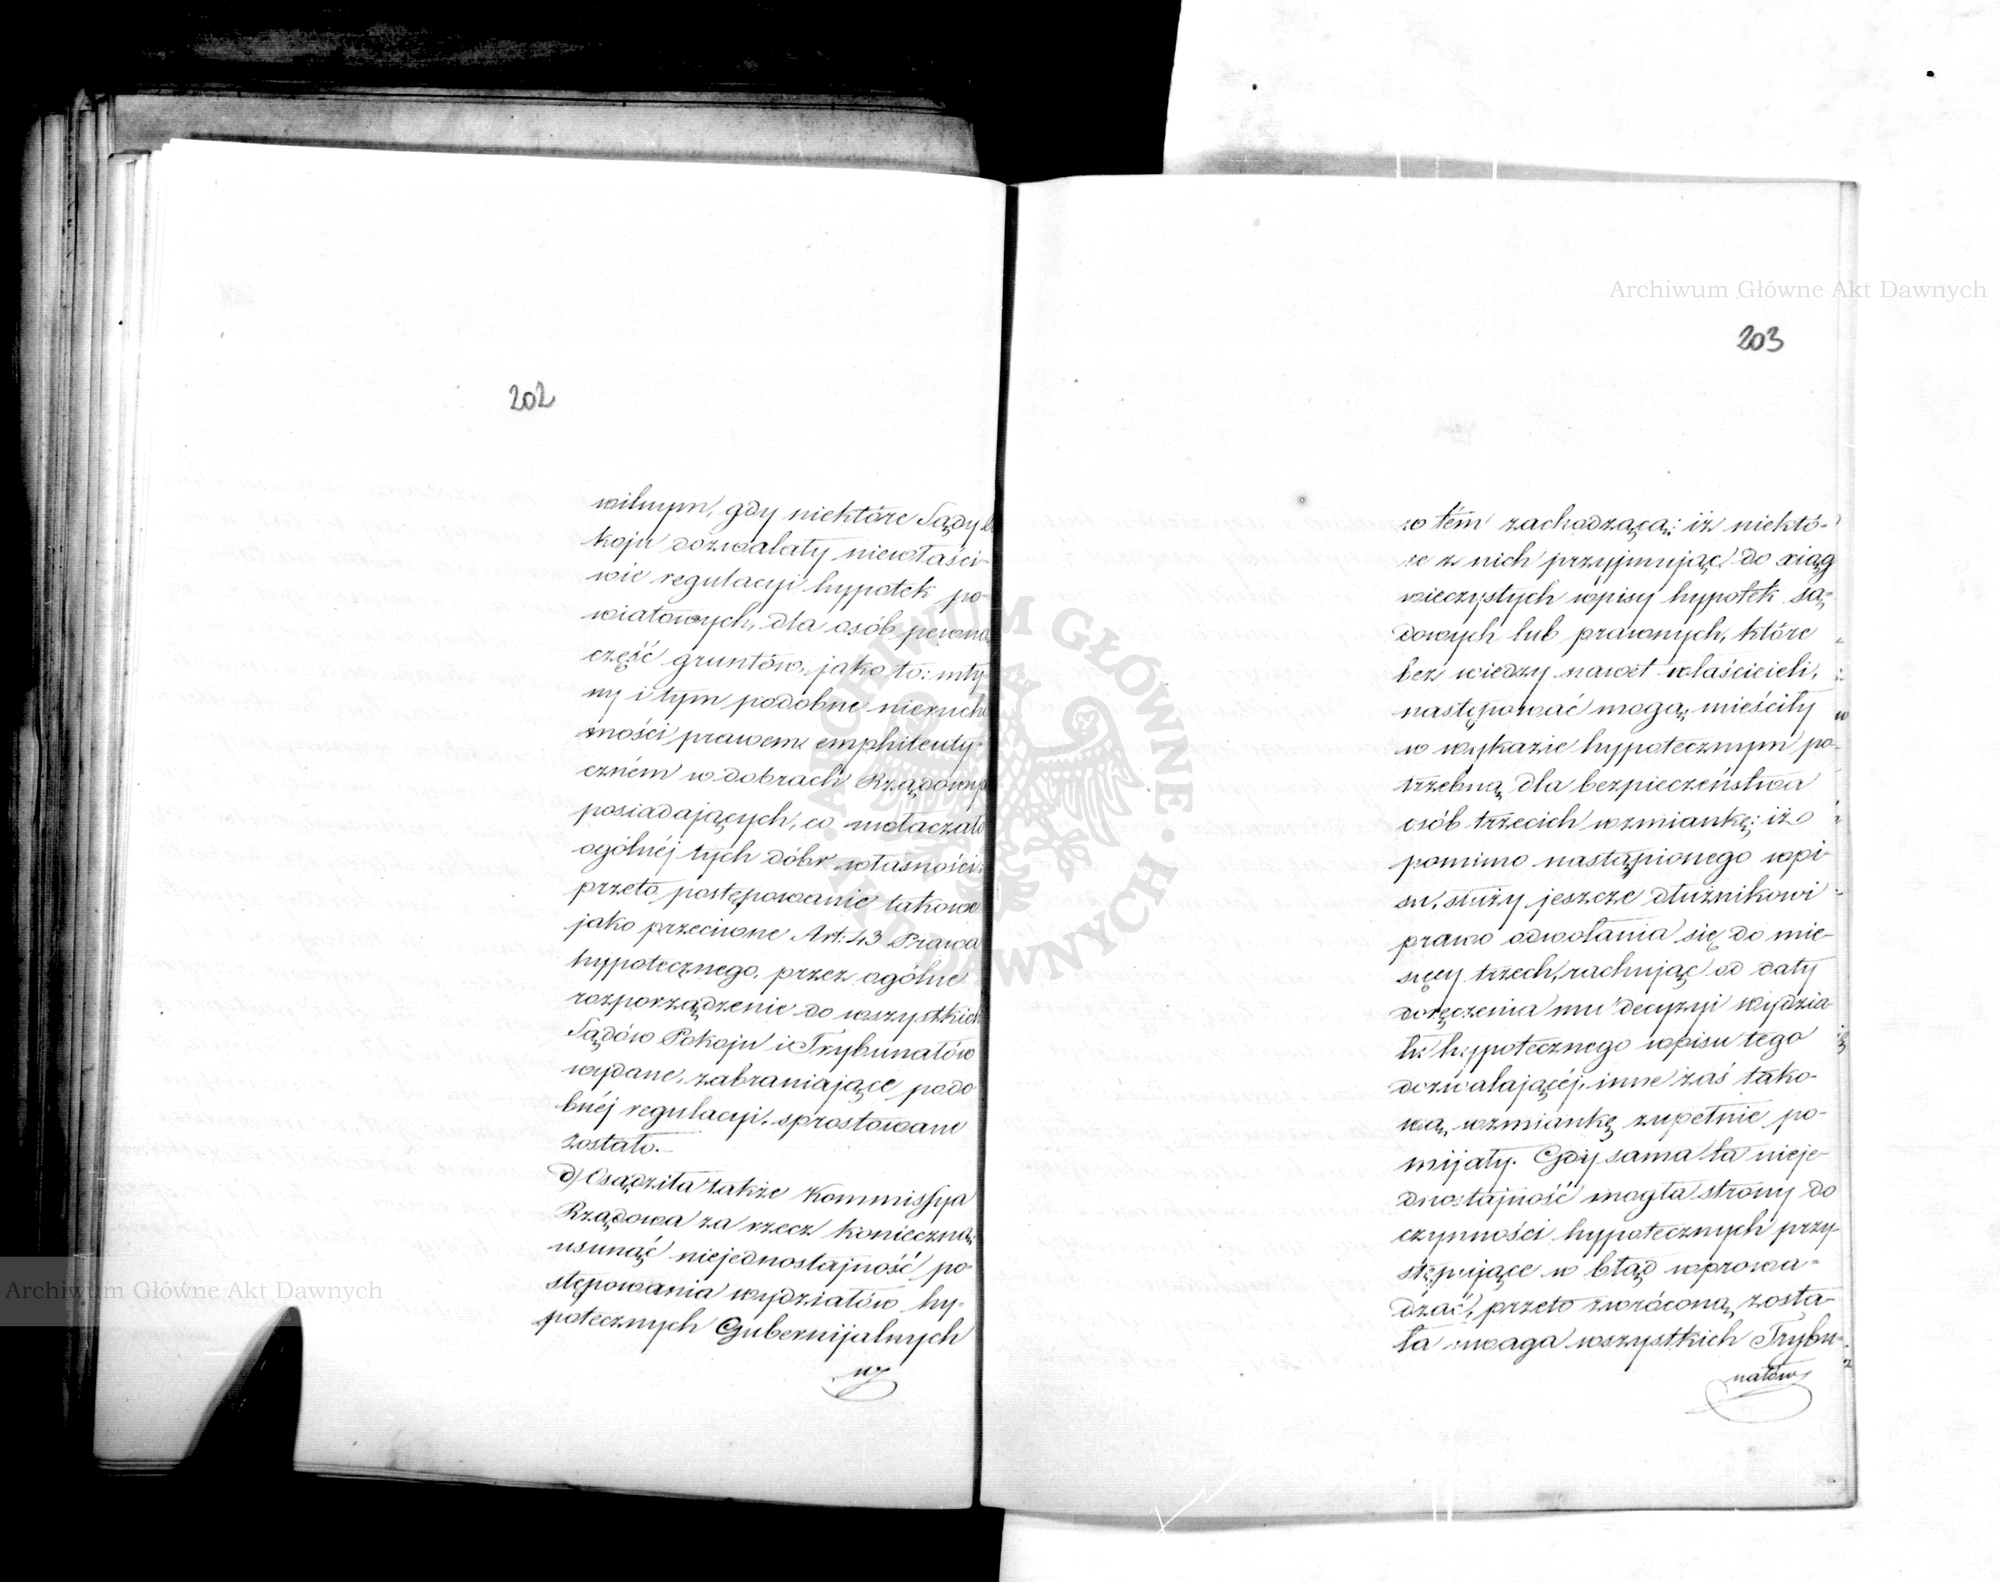 202
wilnym, gdy niektóre Sądy
koju dozwalały niewłaści-
wie regulacyi hypotek po-
wiatowych, dla osób pewną
część gruntów, jako to: mły
ny i tym podobne nierucho
mości prawem emphiteuty-
czném w dobrach Rządowych
posiadających, co uwłaczało
ogólnéj tych dóbr własności,
przeto postępowanie takowe
jako przeciwne Art: 43 Prawa
hypotecznego, przez ogólne
rozporządzenie do wszystkich
Sądów Pokoju i Trybunałów
wydane, zabraniające podo
bnéj regulacyi, sprostowane
zostało.
d) Osądziła także Kommissya
Rządowa za rzecz konieczną,
usunąć niejednostajność po-
stępowania wydziałów hy-
potecznych Gubernijalnych
w
203
w tém zachodzącą: iż niektó-
re z nich przyjmując do xiąg
wieczystych wpisy hypotek są-
dowych lub prawnych, które
bez wiedzy nawet właścicieli,
następować mogą, mieściły
w wykazie hypotecznym po-
trzebną dla bezpieczeństwa
osób trzecich wzmiankę: iż
pomimo nastąpionego wpi-
su, służy jeszcze dłużnikowi
prawo odwołania się do mie-
sięcy trzech, rachując od daty
doręczenia mu decyzyi wydzia
łu hypotecznego wpisu tego
dozwalającéj, inne zaś tako-
wą wzmiankę zupełnie po-
mijały. Gdy sama ta nieje-
dnostajność mogła strony do
czynności hypotecznych przy-
stępujące w błąd wprowa-
dzać, przeto zwróconą zosta-
ła uwaga wszystkich Trybu-
nałów
Archiwum Główne Akt Dawnych
Archiwum Główne Akt Dawnych
ARCHIWUM GŁÓWNE AKT DAWNYCH